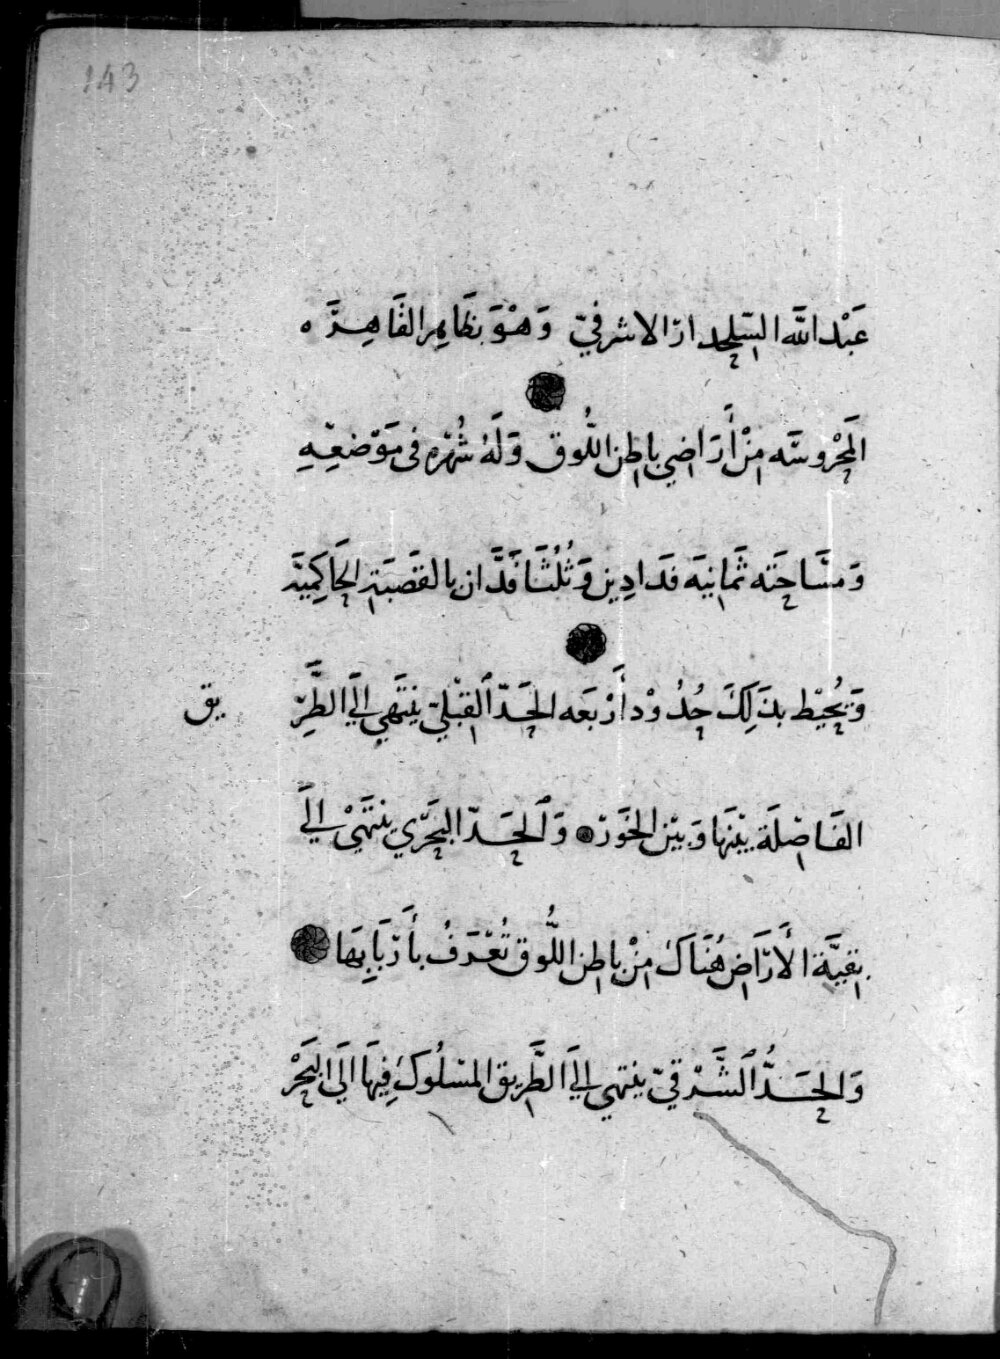 143
عَبْد الله السِّلِحدارّ الاشرفيّ وَهْوَ بظَاهِر القَاهِرَه
المَحْرُوسَه مِنْ أَرَاضِي باطِن اللُّوق وَلَهُ شُهْرَه فى مَوْضعِهِ
وَمسَاحتَه ثَمانيَه فدَادِين وَثُلُثَا فَدَّان بالقصَبَة الحَاكِمِيَّة
وَيُحيْط بذَلِكَ حُدُوْد أَرْبعَه الحَدّ القِبْليّ ينتَهي إلَى الطَّرِّيق
الفَاصِلَة بيْنهَا وَبيْن الخَوَر وَالحَدّ البَحَرّي ينتَهيْ إلَى
بقيَّة الأَرَاض هُنَاكَ مِنْ باطِن اللُّوق تُعْرَفُ بأَرْبَابِهَا
وَالحَدُّ الشَّرْقيّ ينتهي إلَى الطَّرِيق المسْلُوكْ فِيهَا الَى البَحَرْ